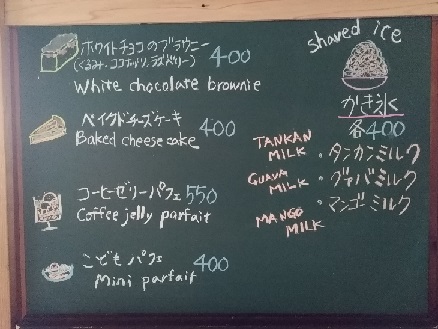 ホワイトチョコのブラウニー
(くるみ・ココナッツ・ラズベリー) 400
White chocolate brownie
ベイクドチーズケーキ 400
Baked cheesecake
コーヒーゼリーパフェ 550
Coffee jelly parfait
こどもパフェ 400
Mini parfait
shaved ice
かき氷
各400
TANKAN MILK ・タンカンミルク
GUAVA MILK ・グァバミルク
MANGO MILK ・マンゴミルク